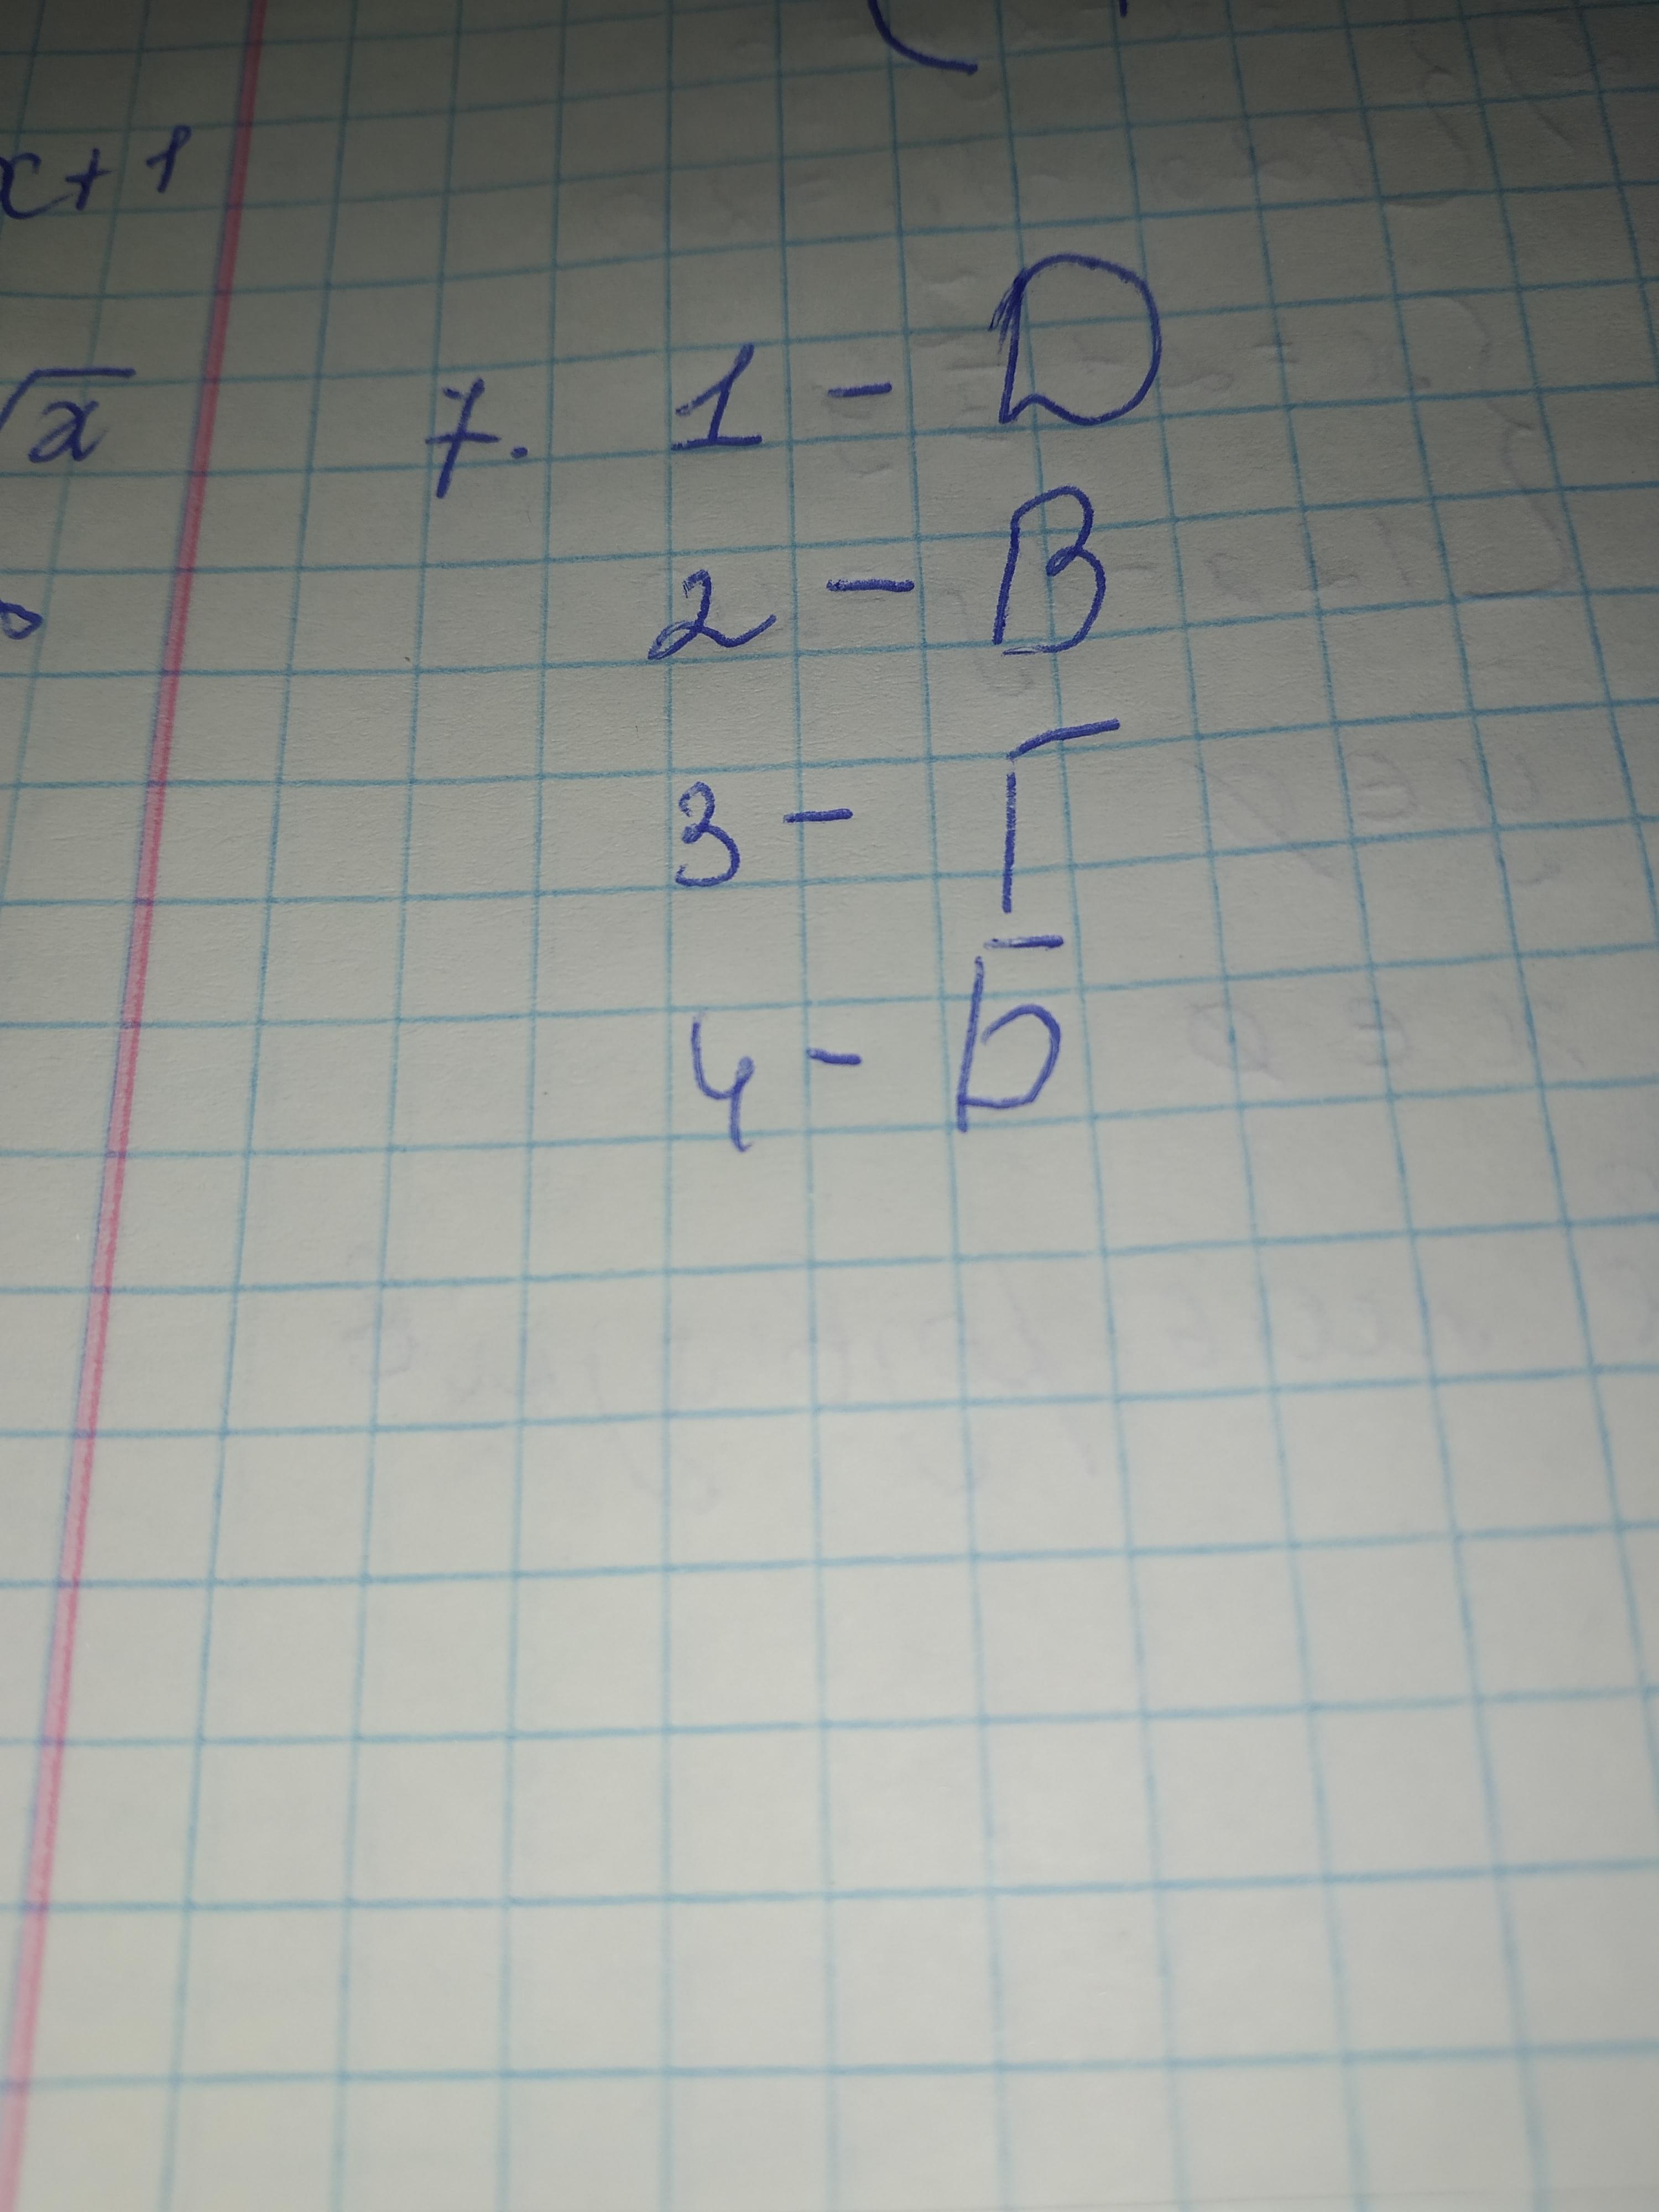 x+1
√x
7. 1 - D
2 - В
3 - Г
4 - Б